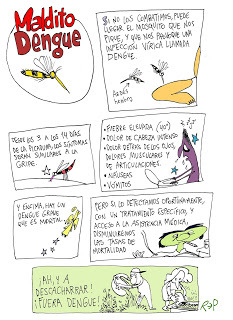 Maldito
Dengue
SI NO LOS COMBATIMOS, PUEDE
LLEGAR EL MOSQUITO QUE NOS
PIQUE, Y QUE NOS PROVOQUE UNA
INFECCIÓN VÍRICA LLAMADA
DENGUE.
Aedes
hembra
DESDE LOS 3 A LOS 14 DÍAS
DE LA PICADURA, LOS SÍNTOMAS
SERÁN SIMILARES A LA
GRIPE.
• FIEBRE ELEVADA (40°)
• DOLOR DE CABEZA INTENSO
• DOLOR DETRÁS DE LOS OJOS,
DOLORES MUSCULARES Y
DE ARTICULACIONES.
• NÁUSEAS
• VÓMITOS
Y ENCIMA, HAY UN
DENGUE GRAVE
QUE ES MORTAL.
PERO SI LO DETECTAMOS OPORTUNAMENTE,
CON UN TRATAMIENTO ESPECÍFICO, Y
ACCESO A LA ASISTENCIA MÉDICA,
DISMINUIREMOS
LAS TASAS DE
MORTALIDAD
¡AH, Y A
DESCACHARRAR!
¡FUERA DENGUE!
REP